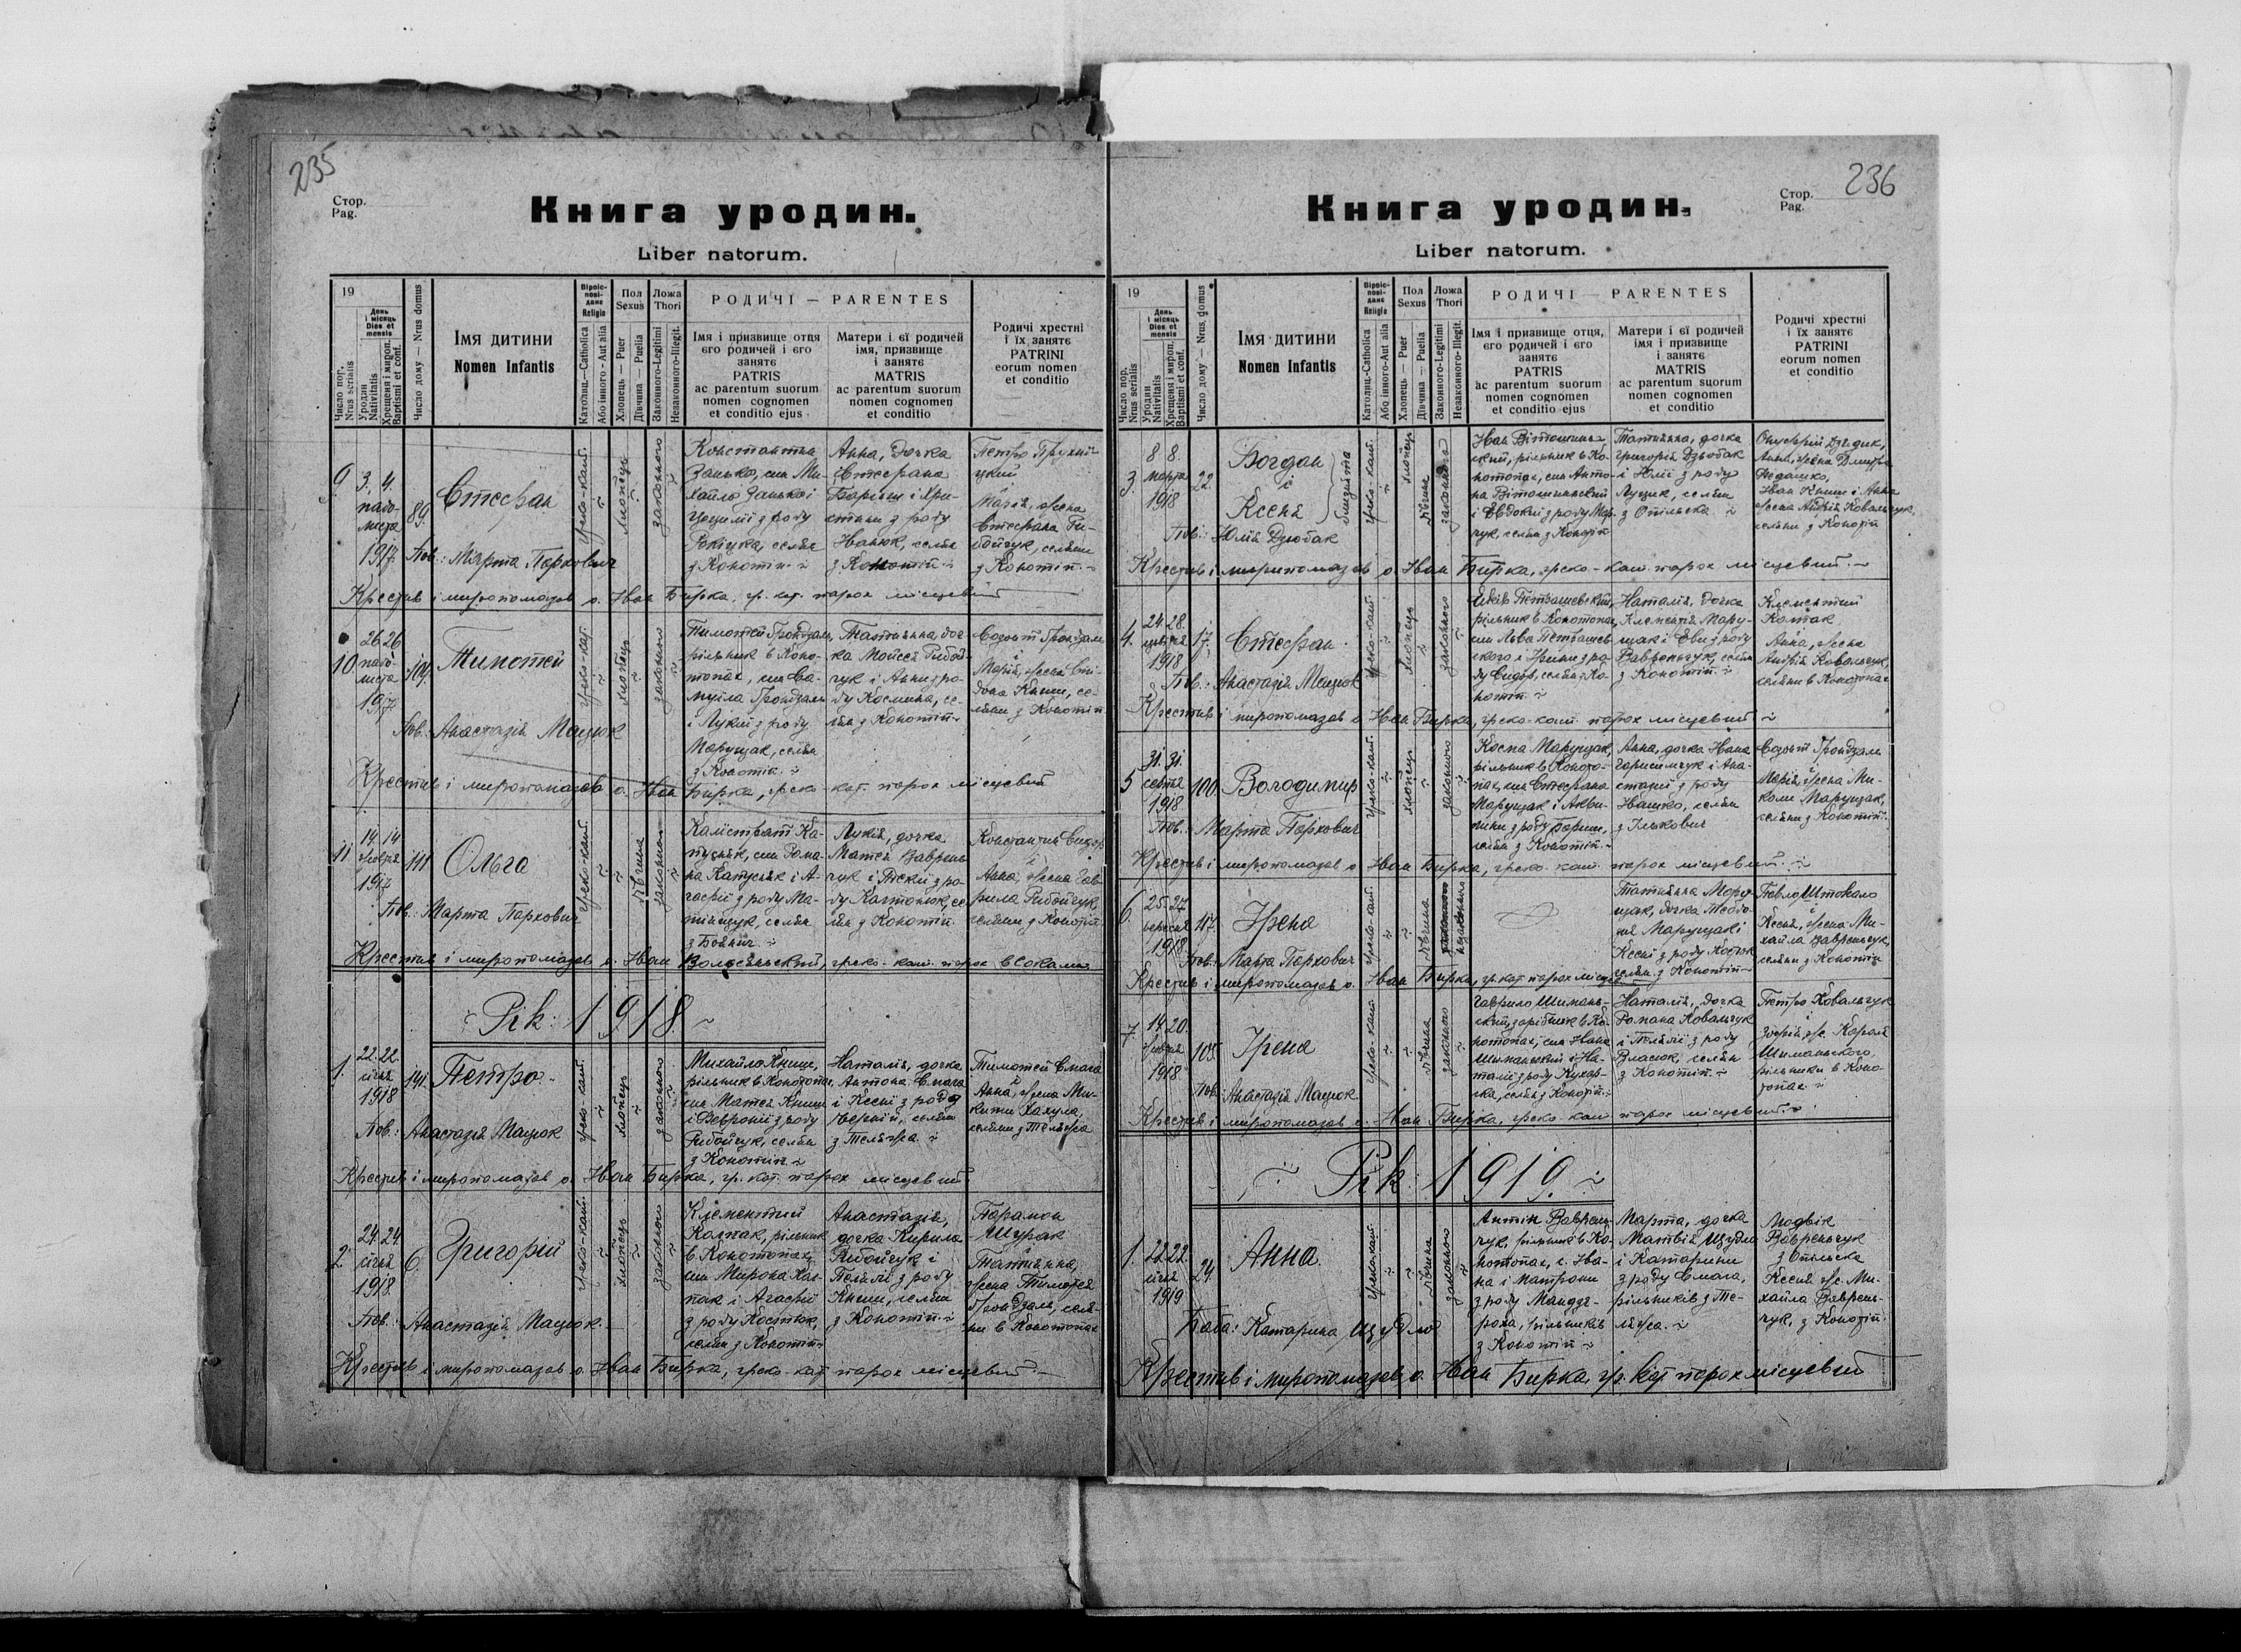 235
Стор.
Pag.
Книга уродин.
Liber natorum.
19
Число пор.
Nrus serialis
День
і місяць
Dies et
mensis
Уродин
Nativitatis
Хрещеня і миропом.
Baptismi et conf.
Число дому — Nrus domus
Імя дитини
Nomen Infantis
Віроіс-
пові-
данє
Religio
Католиц.—Catholica
Або інного-Aut alia
Пол
Sexus
Хлопець — Puer
Дівчина — Puella
Ложа
Thori
Законного-Legitimi
Незаконного-Illegit.
РОДИЧІ — PARENTES
Імя і призвище отця
єго родичей і єго
занятє
PATRIS
ac parentum suorum
nomen cognomen
et conditio ejus
Матери і єї родичей
імя, призвище
і занятє
MATRIS
ac parentum suorum
nomen cognomen
et conditio
Родичі хрестні
і їх занятє
PATRINI
eorum nomen
et conditio
9
3. 4.
падо-
листа
1917
89.
Стефан
греко-кат.
хлопець
законного
Константин
Занько, син Ми-
хайла Занько і
з роду
селян
з Конотіп
Анна, дочка
Стефана
Бариш і Хри-
стини з роду
Іванюк, селян
з Конотіп
Петро
Марія, жена
Стефана Ри-
бойчук, селяни
з Конотіп.
Пов.: Марта Паркович
Крестив і миропомазав о. Іван Бирка, гр. кат. парох місцевий
10
26 26
падо-
листа
1917
104.
Тимотей
греко-кат.
хлопець
законного
Тимотей Грондзаль,
рільник в Коно-
топах, син Са-
муїла Грондзаль
і Лукиї з роду
Марущак, селян
з Конотіп
Татиянна, доч-
ка Мойсея Рибой-
чук і Анни з ро-
ду Космина, се-
лян з Конотіп
Созонт Грондзаль
і
Марія, жена Спи-
дона Книш, се-
ляни з Конотіп
Пов. Анастазія Мацюк
Крестив і миропомазав о. Іван Бирка, греко-кат. парох місцевий
11
14. 14
грудня
1917
111
Ольга
греко-кат.
дівчина
законного
Калістрат Ка-
пусняк, син Рома-
на Капусняк і А-
гафії з роду Ма-
тіищук, селян
з Боянич
Лукія, дочка
Матея Вавринь-
чук і Теклі з ро-
ду Каптонюк, се-
лян з Конотіп
Константин Сидор
і
Анна, жена Гав-
рила Рибойчук,
селяни з Конотіп
Пов.: Марта Паркович
Крестив і миропомазав о. Іван Волосяньский, греко-кат. парох в Сокали
Рік: 1918.
1.
22. 22.
січня
1918
141
Петро
греко-кат.
хлопець
законного
Михайло Книш,
рільник в Конотопах,
син Матея Книш
і Февронії з роду
Рибойчук, селян
з Конотіп
Наталія, дочка
Антона Смага
і Ксені з роду
селян
з Теляжа
Тимотей Смага
і
Анна, жена Ми-
кити Хахула,
селяни з Теляжа
Пов.: Анастазія Мацюк
Крестив і миропомазав о. Іван Бирка, гр. кат. парох місцевий
2.
24. 24.
січня
1918.
6.
Григорій
греко-кат.
хлопець
законного
Клементий
Колпак, рільник
в Конотопах,
син Мирона Кол-
пак і Агафії
з роду Костюк,
селян з Конотіп
Анастазія,
дочка Кирила
Рибойчук і
Пелягії з роду
Книш, селян
з Конотіп
Парамон
Щурак
і
Татиянна,
жена Тимотея
Грондзаль, селя-
ни в Конотопах
Пов.: Анастазія Мацюк.
Крестив і миропомазав о. Іван Бирка, греко-кат. парох місцевий
236
Стор.
Pag.
Книга уродин.
Liber natorum.
19
Число пор.
Nrus serialis
День
і місяць
Dies et
mensis
Уродин
Nativitatis
Хрещеня і мироп.
Baptismi et conf.
Число дому — Nrus. domus
Імя дитини
Nomen Infantis
Віроіс-
пові-
данє
Religio
Католиц-Catholica
Або інного-Aut alia
Пол
Sexus
Хлопець — Puer
Дівчина — Puella
Ложа
Thori
Законного-Legitimi
Незаконного-Illegit.
РОДИЧІ — PARENTES
Імя і призвище отця,
єго родичей і єго
занятє
PATRIS
ac parentum suorum
nomen cognomen
et conditio ejus
Матери і єї родичей
імя і призвище
і занятє
MATRIS
ac parentum suorum
nomen cognomen
et conditio
Родичі хрестні
і їх занятє
PATRINI
eorum nomen
et conditio
3
8 8.
марта
1918
22.
Богдан
і
Ксеня
близнята
греко-кат.
хлопець
дівчина
законного
Іван Вітошинь-
ский, рільник в Ко-
нотопах, син Анто-
на Вітошинський
і Евдокії з роду Мар-
чук, селян з Конотіп
Татиянна, дочка
Григорія Дзьобак
і Юлії з роду
Луцик, селян
з Опільска
Онуфрій Дзедик,
Анна, жена Дмитра
Федашко,
Іван Книш і Анна
жена Андрія Ковальчук,
селяни з Конотіп
Пов.: Юлія Дзюбак
Крестив і миропомазав о. Іван Бирка, греко-кат. парох місцевий
4.
24. 28.
1918
17.
Стефан
греко-кат.
хлопець
законного
Яків Петрашевский,
рільник в Конотопах,
син Льва Петрашев-
ского і Ірини з ро-
ду Сидор, селян з Ко-
нотіп
Наталія, дочка
Клементія Мару-
щак і Еви з роду
Вавреньчук, селян
з Конотіп
Клементий
Колпак
Анна, жена
Андрія Ковальчук,
селяни в Конотопах
Пов.: Анастазія Мацюк
Крестив і миропомазав о. Іван Бирка, греко-кат. парох місцевий
5
31. 31.
серпня
1918
100.
Володимир
греко-кат.
хлопець
законного
Косма Марущак,
рільник в Коното-
пах, син Стефана
Марущак і Акви-
лини з роду Бариш,
селян з Конотіп
Анна, дочка Івана
Герасимчук і Ана-
стазиї з роду
Івашко, селян
з Ількович
Созонт Грондзаль
і
Марія, жена Ми-
коли Марущак,
селяни з Конотіп
Пов. Марта Паркович
Крестив і миропомазав о. Іван Бирка, греко-кат. парох місцевий
6.
25. 27.
вересня
1918
117.
Ірена
греко-кат.
дівчина
незаконного
Татиянна Мару-
щак, дочка Теодо-
ра Марущак і
Ксені з роду Костюк,
селян з Конотіп
Павло Штокало
і
Ксеня, жена Ми-
хайла Вавреньчук,
селяни з Конотіп
Пов.: Марта Паркович
Крестив і миропомазав о. Іван Бирка, гр. кат. парох місцев.
7.
14. 20.
грудня
1918
105.
Ірена
греко-кат.
дівчина
законного
Гаврило Шимань-
ский, зарібник в Ко-
нотопах, син Івана
Шиманьский і На-
талії з роду Кухар-
ска, селян з Конотіп
Наталія, дочка
Романа Ковальчук
і Пелягії з роду
Власюк, селян
з Конотіп
Петро Ковальчук
і
Зофія, ж. Кароля
Шиманьского,
рільники в Коно-
топах
Пов.: Анастазія Мацюк
Крестив і миропомазав о. Іван Бирка, греко-кат. парох місцевий
Рік: 1919.
1.
22 22.
січня
1919
24.
Анна
греко-кат.
дівчина
законного
Антін Вавринь-
чук, рільник в Ко-
нотопах, с. Іва-
на і Матрони
з роду Мандзе-
рока, рільників
з Конотіп
Марта, дочка
Матвія Щудло
і Катарини
з роду Смага,
рільників з Те-
ляжа.
Людвік
Вавреньчук
з Опільска
Ксеня ж. Ми-
хайла Ваврень-
чук, з Конотіп
Баба: Катарина Щудло
Крестив і миропомазав о. Іван Бирка, гр. кат. парох місцевий